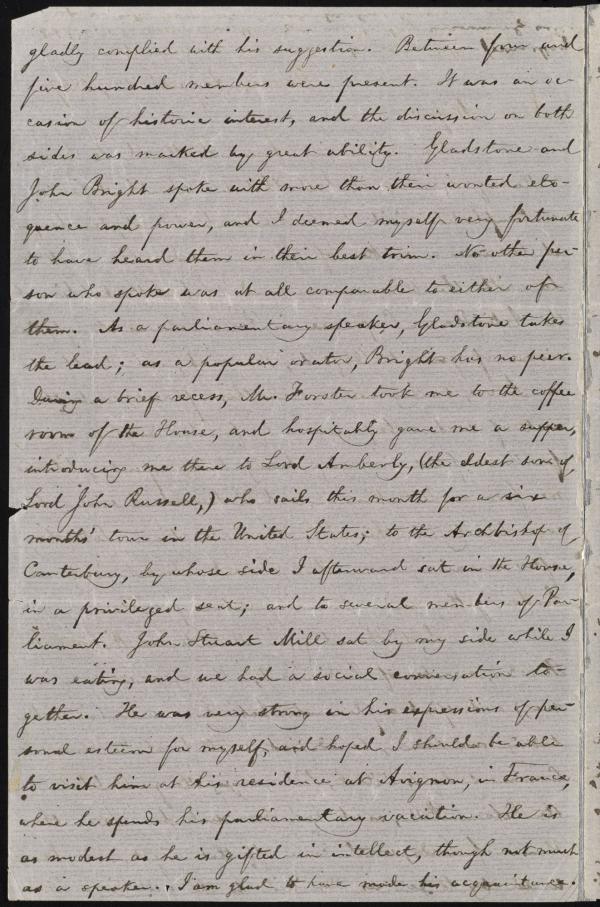 gladly complied with his suggestion. Between four and
five hundred members were present. It was an oc-
casion of historic interest, and the discussion on both
sides was marked by great ability. Gladstone and
John Bright spoke with more than their wonted elo-
quence and power, and I deemed myself very fortunate
to have heard them in their best trim. No other per-
son who spoke was at all comparable to either of
them. As a parliamentary speaker, Gladstone takes
the lead; as a popular orator, Bright has no peer.
During a brief recess, Mr. Forster took me to the coffee
room of the House, and hospitably gave me a supper,
introducing me there to Lord Amberly, (the eldest son of
Lord John Russell,) who sails this month for a six
months' tour in the United States; to the Archbishop of
Canterbury, by whose side I afterward sat in the House,
in a privileged seat; and to several members of Par-
liament. John Stuart Mill sat by my side while I
was eating, and we had a social conversation to-
gether. He was very strong in his expressions of per-
sonal esteem for myself, and hoped I should be able
to visit him at his residence at Avignon, in France,
where he spends his parliamentary vacation. He is
as modest as he is gifted in intellect, though not much
as a speaker. I am glad to have made his acquaintance.